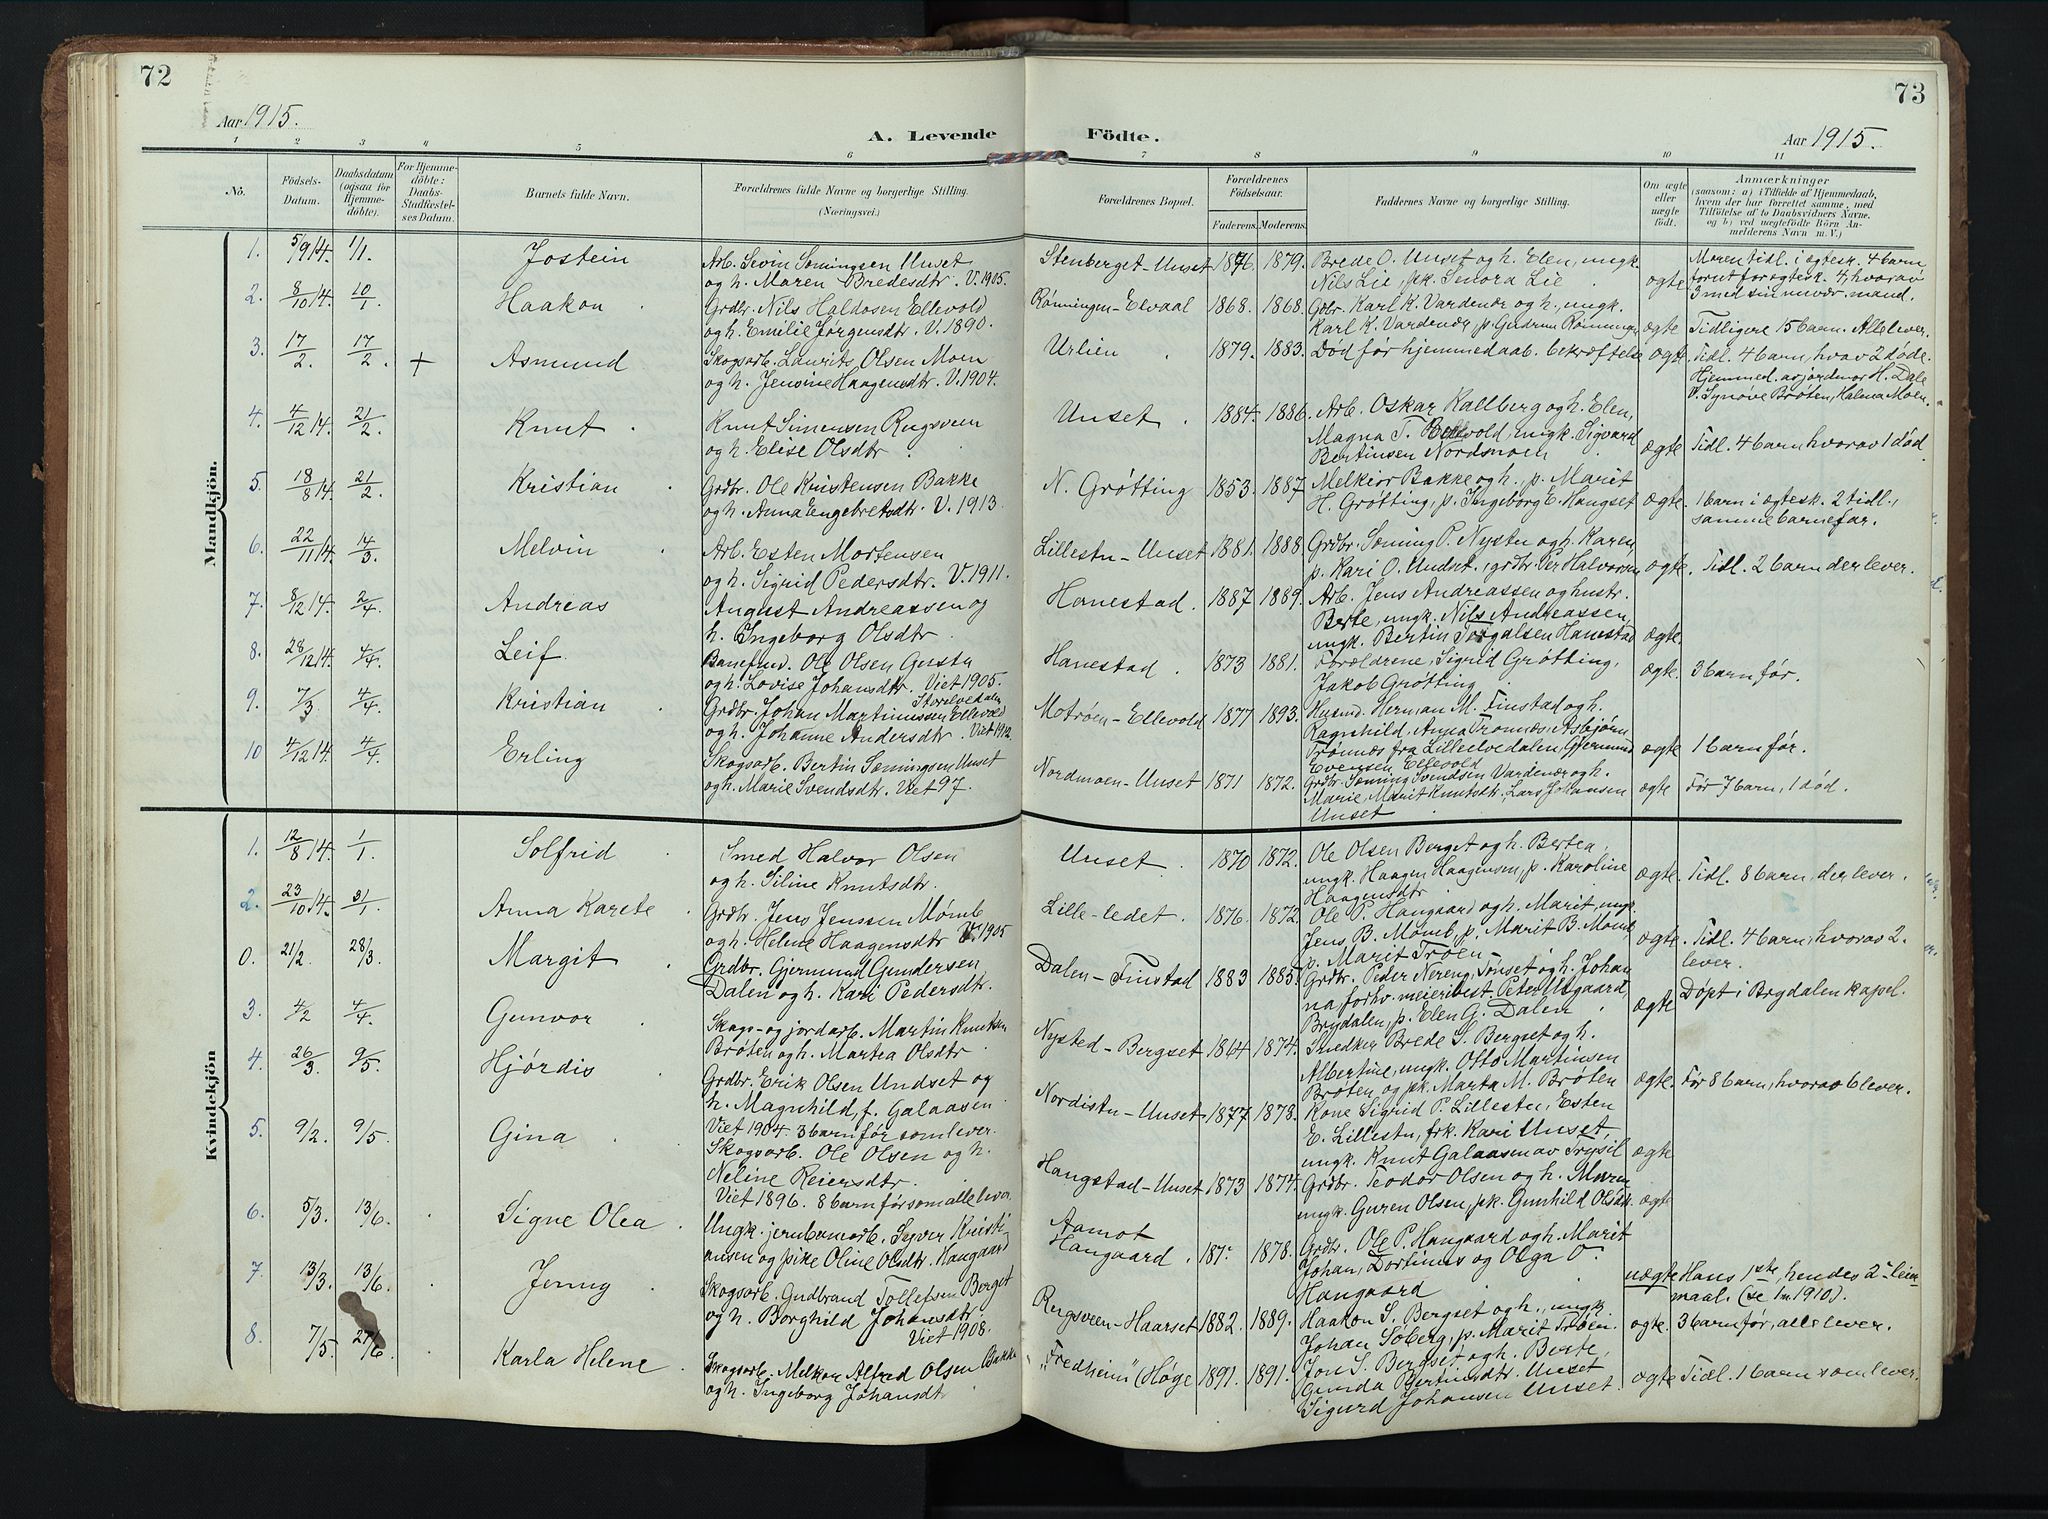 72
73
Aar 1915.
A. Levende Födte.
Aar 1915.
1 2 3 4 5 6 7 8 9 10 11
Nö.
Födsels-Datum.
Daabsdatum (ogsaa for Hjemmedöbte).
For Hjemmedöbte: Daabs-Stadfæstelses Datum.
Barnets fulde Navn.
Forældrenes fulde Navne og borgerlige Stilling. (Næringsvei.)
Forældrenes Bopæl.
Forældrenes Födselsaar.
Faderens. Moderens.
Faddernes Navne og borgerlige Stilling.
Om ægte eller uægte födt.
Anmærkninger
(saasom: a) i Tilfælde af Hjemmedaab,
hvem der har forrettet samme, med
Tilföielse af to Daabsvidners Navne,
og b) ved uægtefödte Börn Anmelderens Navn m. V.)
Mandkjön.
1. 5/9 14. 1/1. Jostein
Arb. Sevin Sæmingsen Unset
og h. Maren Bredesdtr. V. 1905.
Stenberget-Unset 1876. 1879.
Brede O. Unset og h. Elen, ungk.
Nils Lie, pk. Lie
ægte
Moren tidl. i ægtesk. 4 barn
forut for ægtesk. 4, hvorav
3 med sin nuvær. mand.
2. 8/10 14. 10/1 Haakon.
Grdbr. Nils Haldosen Ellevold
og h. Emilie Jørgensdtr. V. 1890.
Rønningen-Elvaal 1868. 1868.
Gbr. Karl K. Vardenær og h., ungk.
Karl K. Vardenær, p. Gudrun Rønningen
ægte
Tidligere 15 barn. Alle lever.
3. 17/2. 17/2. + Asmund
Skogsarb. Laurits Olsen Moen
og h. Jensine Haagensdtr. V. 1904.
Urlien. 1879. 1883.
Død før hjemmedaab. bekræftelse
ægte
Tidl. 4 barn, hvorav 2 døde.
Hjemmed. av jordmor H. Dale
V. Synøve Brøten, Kalena Moen.
4. 4/12 14. 21/2. Knut
Knut Simensen Rugsveen
og h. Elise Olsdtr.
Unset. 1884. 1886.
Arb. Oskar Kallberg og h. Elen,
Magna T. Bellvold, ungk. Sigvard
Bertinsen Nordsmoen
ægte
Tidl. 4 barn hvorav 1 død
5. 18/8 14. 21/2. Kristian
Grdbr. Ole Kristensen Bakke
og h. Anna Engebretsdtr. V. 1913.
N. Grøtting 1853. 1887
Melkior Bakke og h., p. Marit
H. Grøtting, p. Ingeborg E. Hangset
ægte.
1 barn i ægtesk. 2 tidl.,
samme barnefar.
6. 22/11 14. 14/3. Melvin
Arb. Esten Mortensen
og h. Sigrid Pedersdtr. V. 1911.
Lillestu-Unset 1881. 1888.
Grdbr. Sæming P. Nystu og h. Karen,
p. Kari O. Undset, grdbr. Per Halvorsen
ægte.
Tidl. 2 barn der lever.
7. 8/12 14. 2/4. Andreas
August Andreassen og
h. Ingeborg Olsdtr.
Hanestad. 1887. 1889.
Arb. Jens Andreassen og hustr.
Berte, ungk. Nils Andreassen,
ungk. Bertin Torgalsen Hanestad
ægte.
8. 28/12 14. 4/4. Leif.
Banefmd. Ole Olsen Gustu
og h. Lovise Johansdtr. Viet 1905.
Hanestad. 1873 1881.
Forældrene, Sigrid Grøtting,
Jakob Grøtting
ægte.
3 barn før.
9. 7/3 4/4. Kristian
Storelvedalen
Grdbr. Johan Martinussen Ellevold
og h. Johanne Andersdtr. Viet 1912.
Motrøen-Ellevold 1877 1893.
Kusmd. Herman M. Finstad og h.
Ragnhild, Anna Trønnes, Asbjørn
Trønnæs fra Lilleelvedalen, Gjermund
Evensen Ellevold
ægte
1 barn før.
10 4/12 14. 4/4. Erling
Skogsarb. Bertin Sæmingsen Unset
og h. Marie Svendsdtr. Viet 97.
Nordmoen-Unset 1871 1872.
Grdbr. Sæming Svendsen Vardenær og h.
Marie, Marit Knutsdtr., Lars Johansen
Unset.
ægte
Før 7 barn, 1 død.
Kvindekjön
1. 12/8 14. 1/1. Solfrid
Smed Halvor Olsen
og h. Siline Knutsdtr.
Unset. 1870 1872.
Ole Olsen Berget og h. Bertea,
ungk. Haagen Haagensen, p. Karoline
Haagensdtr
ægte.
Tidl. 8 barn, der lever.
2. 23/10 14. 31/1. Anna Karete.
Grdbr. Jens Jenssen Mømb
og h. Helene Haagensdtr V. 1905
Lille-ledet. 1876. 1872.
Ole P. Hangaard og h. Marit, ungk.
Jens B. Mømb, p. Marit B. Mømb,
p. Marit Trøen
ægte.
Tidl. 4 barn, hvorav 2.
lever.
0. 21/2. 28/3. Margit
Grdbr. Gjermund Gundersen
Dalen og h. Kari Pedersdtr.
Dalen-Finstad 1883 1885.
Grdbr. Peder Nereng, Tønset og h. Johanna,
forhv. meieribest. Peter Utgaard,
Brydalen, p. Elen G. Dalen
ægte
Døpt i Brydalen kapel.
3. 4/2 4/4. Gunvor
Skogs- og jordarb. Martin Knutsen
Brøten og h. Martea Olsdtr
Nysted-Bergset 1864 1874.
Snedker Brede S. Bergset og h.
Albertine, ungk. Otto Martinsen
Brøten, og pk. Marta M. Brøten
ægte.
Før 8 barn, hvorav 6 lever.
4. 26/3. 9/5. Hjørdis
Grdbr. Erik Olsen Undset og
h. Magnhild, f. Galaasen.
Viet 1904. 3 barn før som lever.
Nordistu-Unset 1877 1878.
Kone Sigrid P. Lillestu, Esten
E. Lillestu, frk. Kari Unset,
ungk. Knut Galaasen av Trysil
ægte
5. 9/2. 9/5. Gina
Skogsarb. Ole Olsen og h.
Neline Reiersdtr.
Viet 1896. 8 barn før som alle lever
Hangstad-Unset 1873 1874.
Grdbr. Teodor Olsen og h. Maren
ungk. Guren Olsen, pk. Gunhild Olsdtr.
ægte
6. 5/3. 13/6. Signe Olea
Ungk. jernbanearb. Syver Kristiansen
og pike Oline Olsdtr. Hangaard
Aamot
Hangaard. 1878.
Grdbr. Ole P. Hangaard og h. Marit
Johan, Dortinus og Olga O.
Hangaard
uægte
Hans 1ste, hendes 2. leiermaal.
(se 1910).
7. 13/3. 13/6. Jenny
Skogsarb. Gudbrand Tollefsen Berget
og h. Borghild Johansdtr
Viet 1908.
Rugsveen-Haarset 1882. 1889.
Haakon S. Bergset og h., ungk.
Johan Søberg, p. Marit Trøen.
ægte.
3 barn før, alle lever.
8. 7/5. 27/6. Karla Helene
Skogsarb. Melkor Alfred Olsen Bakke
og h. Ingeborg Johansdtr
"Fredheim" (Høge 1891. 1891.
Jon S. Bergset og h. Berte,
Gunda Bertinsdtr. Unset
Sigurd Johansen Unset.
ægte
Tidl. 1 barn som lever.